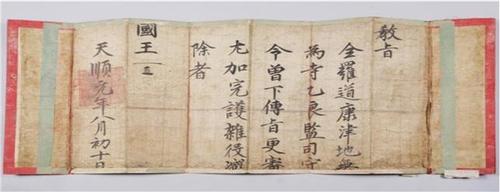 敎旨
全羅道康津地無
為寺乙良監司守
令曾下傳旨更審
尤加完護雜役減
除者
國王
天順元年八月初十日